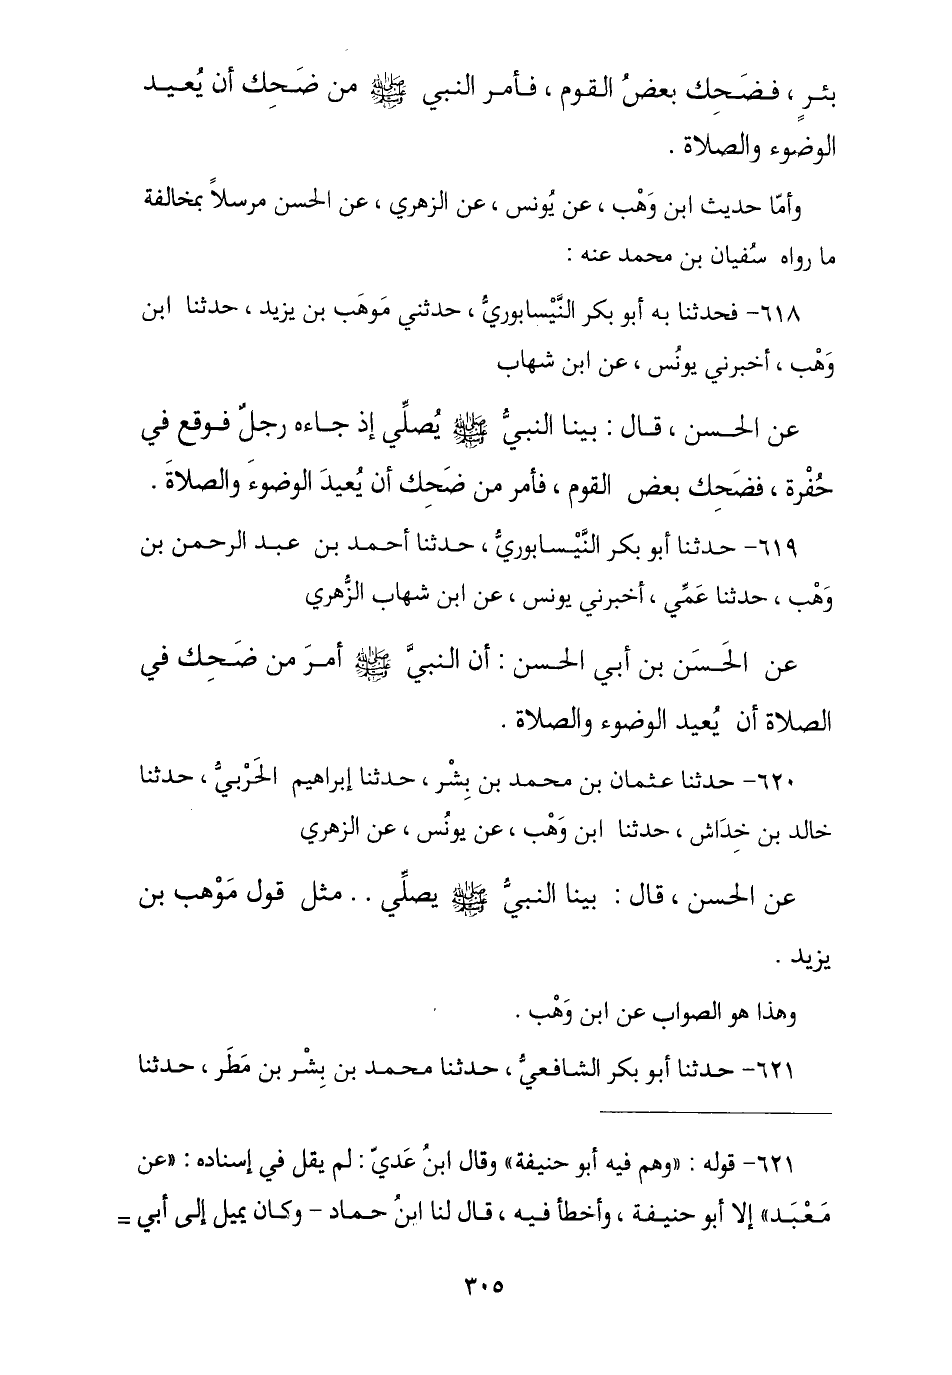 بئرٍ ، فضَحِك بعضُ القوم ، فأمر النبي ﷺ من ضَحِك أن يُعيد
الوضوء والصلاة .
وأمّا حديث ابن وَهْب ، عن يُونس ، عن الزهري ، عن الحسن مرسلاً بمخالفة
ما رواه سُفيان بن محمد عنه :
٦١٨- فحدثنا به أبو بكر النَّيْسابوريُّ ، حدثني مَوهَب بن يزيد ، حدثنا ابن
وَهْب ، أخبرني يونُس ، عن ابن شهاب
عن الحسن ، قال : بينا النبيُّ ﷺ يُصلِّي إذ جاءه رجلٌ فوقع في
حُفْرة ، فضَحِك بعض القوم ، فأمر من ضَحِك أن يُعيدَ الوضوءَ والصلاةَ .
٦١٩- حدثنا أبو بكر النَّيْسابوريُّ ، حدثنا أحمد بن عبد الرحمن بن
وَهْب ، حدثنا عَمِّي ، أخبرني يونس ، عن ابن شهاب الزُّهري
عن الحَسَن بن أبي الحسن : أن النبيَّ ﷺ أمرَ من ضَحِك في
الصلاة أن يُعيد الوضوء والصلاة .
٦٢٠- حدثنا عثمان بن محمد بن بِشْر ، حدثنا إبراهيم الحَرْبيُّ ، حدثنا
خالد بن خِدَاش ، حدثنا ابن وَهْب ، عن يونُس ، عن الزهري
عن الحسن ، قال : بينا النبيُّ ﷺ يصلِّي . . مثل قول مَوْهب بن
يزيد .
وهذا هو الصواب عن ابن وَهْب .
٦٢١- حدثنا أبو بكر الشافعيُّ ، حدثنا محمد بن بِشْر بن مَطَر ، حدثنا
٦٢١- قوله : «وهم فيه أبو حنيفة» وقال ابنُ عَديّ : لم يقل في إسناده : «عن
مَعْبَد» إلا أبو حنيفة ، وأخطأ فيه ، قال لنا ابنُ حماد - وكان يميل إلى أبي =
٣٠٥